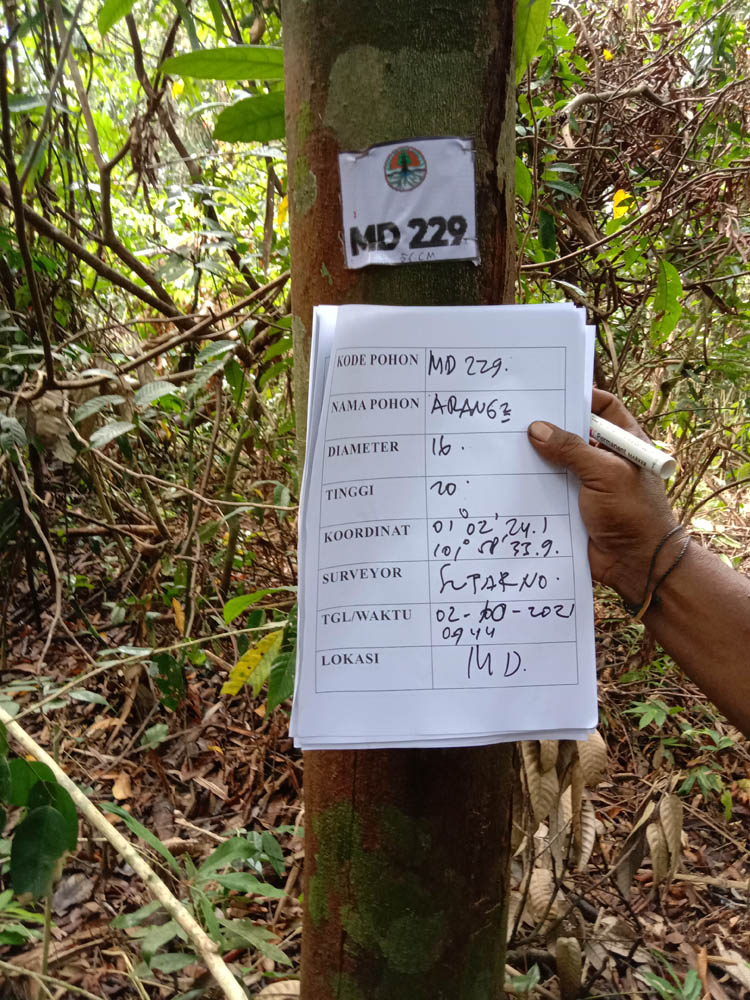 MD 229
KODE POHON MD 229.
NAMA POHON ARANG2
DIAMETER 16.
TINGGI 20.
KOORDINAT 01° 02' 24.1
101° 58' 33.9.
SURVEYOR SUTARNO.
TGL/WAKTU 02-10-2021
0944
LOKASI MD.
PERMANENT MARKER